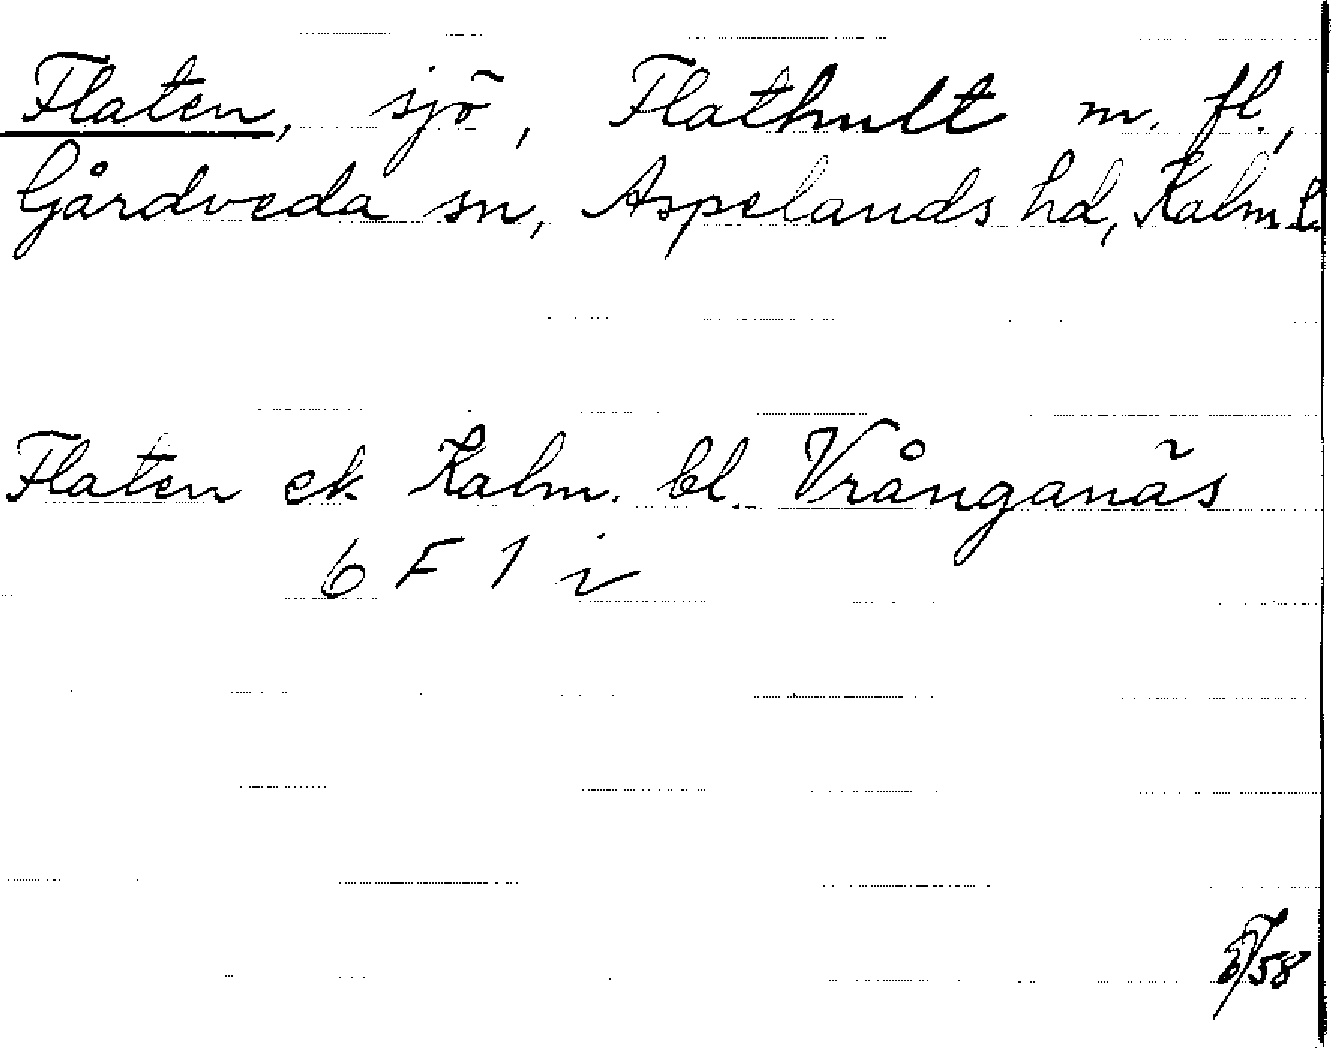 Flaten, sjö, Flathult m. fl.,
Gårdveda sn, Aspelands hd, Kalm. l.
Flaten ek Kalm. bl. Vrånganäs
6 F 1 i